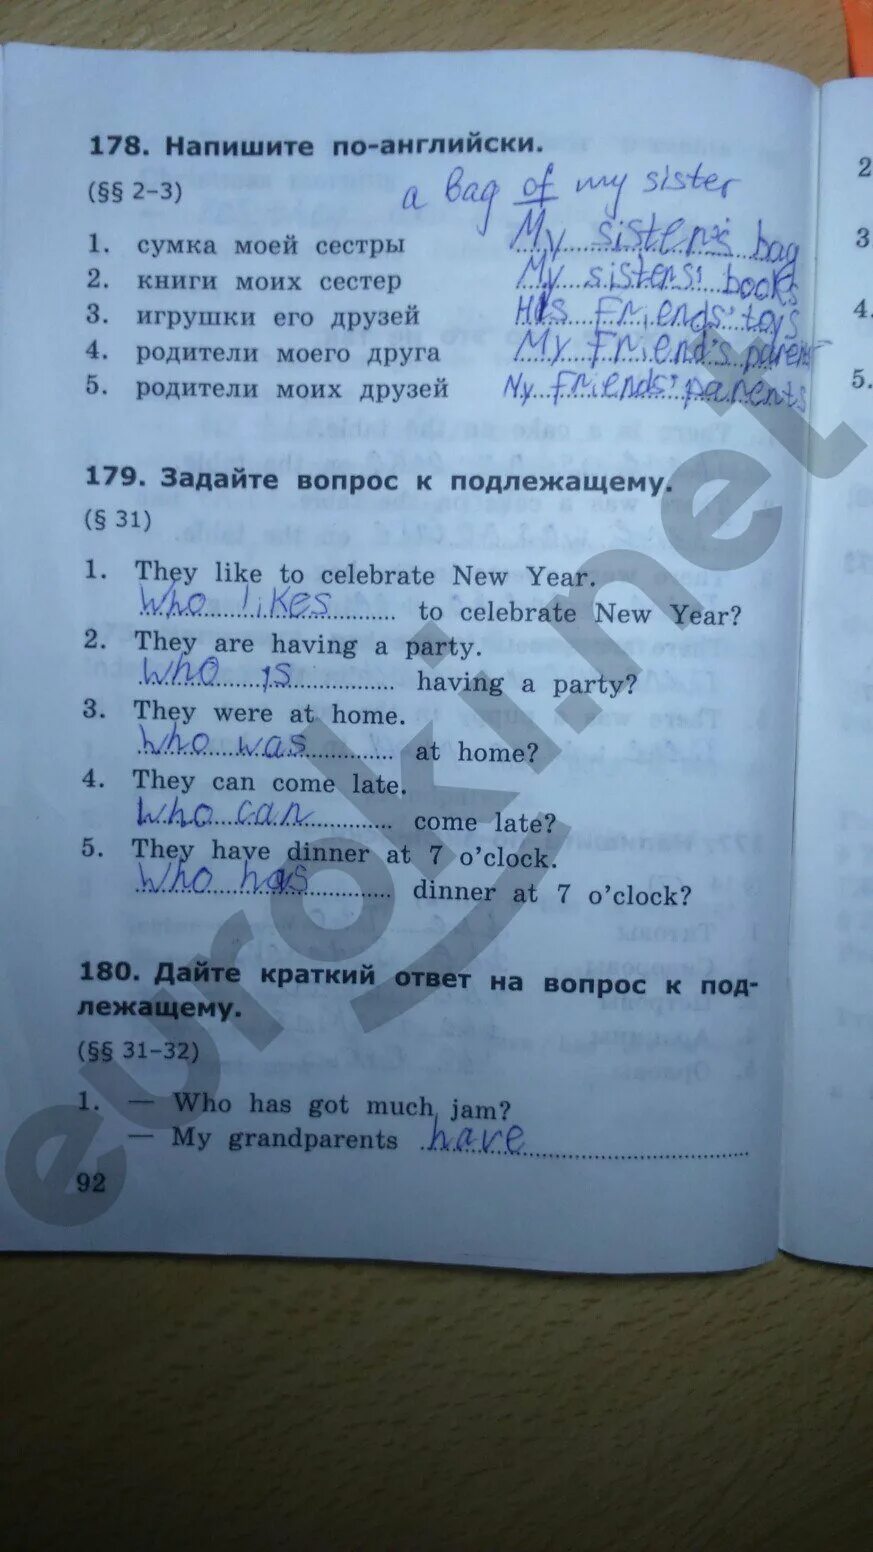 178. Напишите по-английски.
(§§ 2–3)
a bag of my sister
1. сумка моей сестры My sister's bag
2. книги моих сестер My sisters' books
3. игрушки его друзей His Friends' toys
4. родители моего друга My Friend's parents
5. родители моих друзей My Friends' parents
179. Задайте вопрос к подлежащему.
(§ 31)
1. They like to celebrate New Year.
Who likes to celebrate New Year?
2. They are having a party.
Who is having a party?
3. They were at home.
Who was at home?
4. They can come late.
Who can come late?
5. They have dinner at 7 o'clock.
Who has dinner at 7 o'clock?
180. Дайте краткий ответ на вопрос к под-
лежащему.
(§§ 31–32)
1. — Who has got much jam?
— My grandparents have
92
2
3
4.
5.
euroki.net